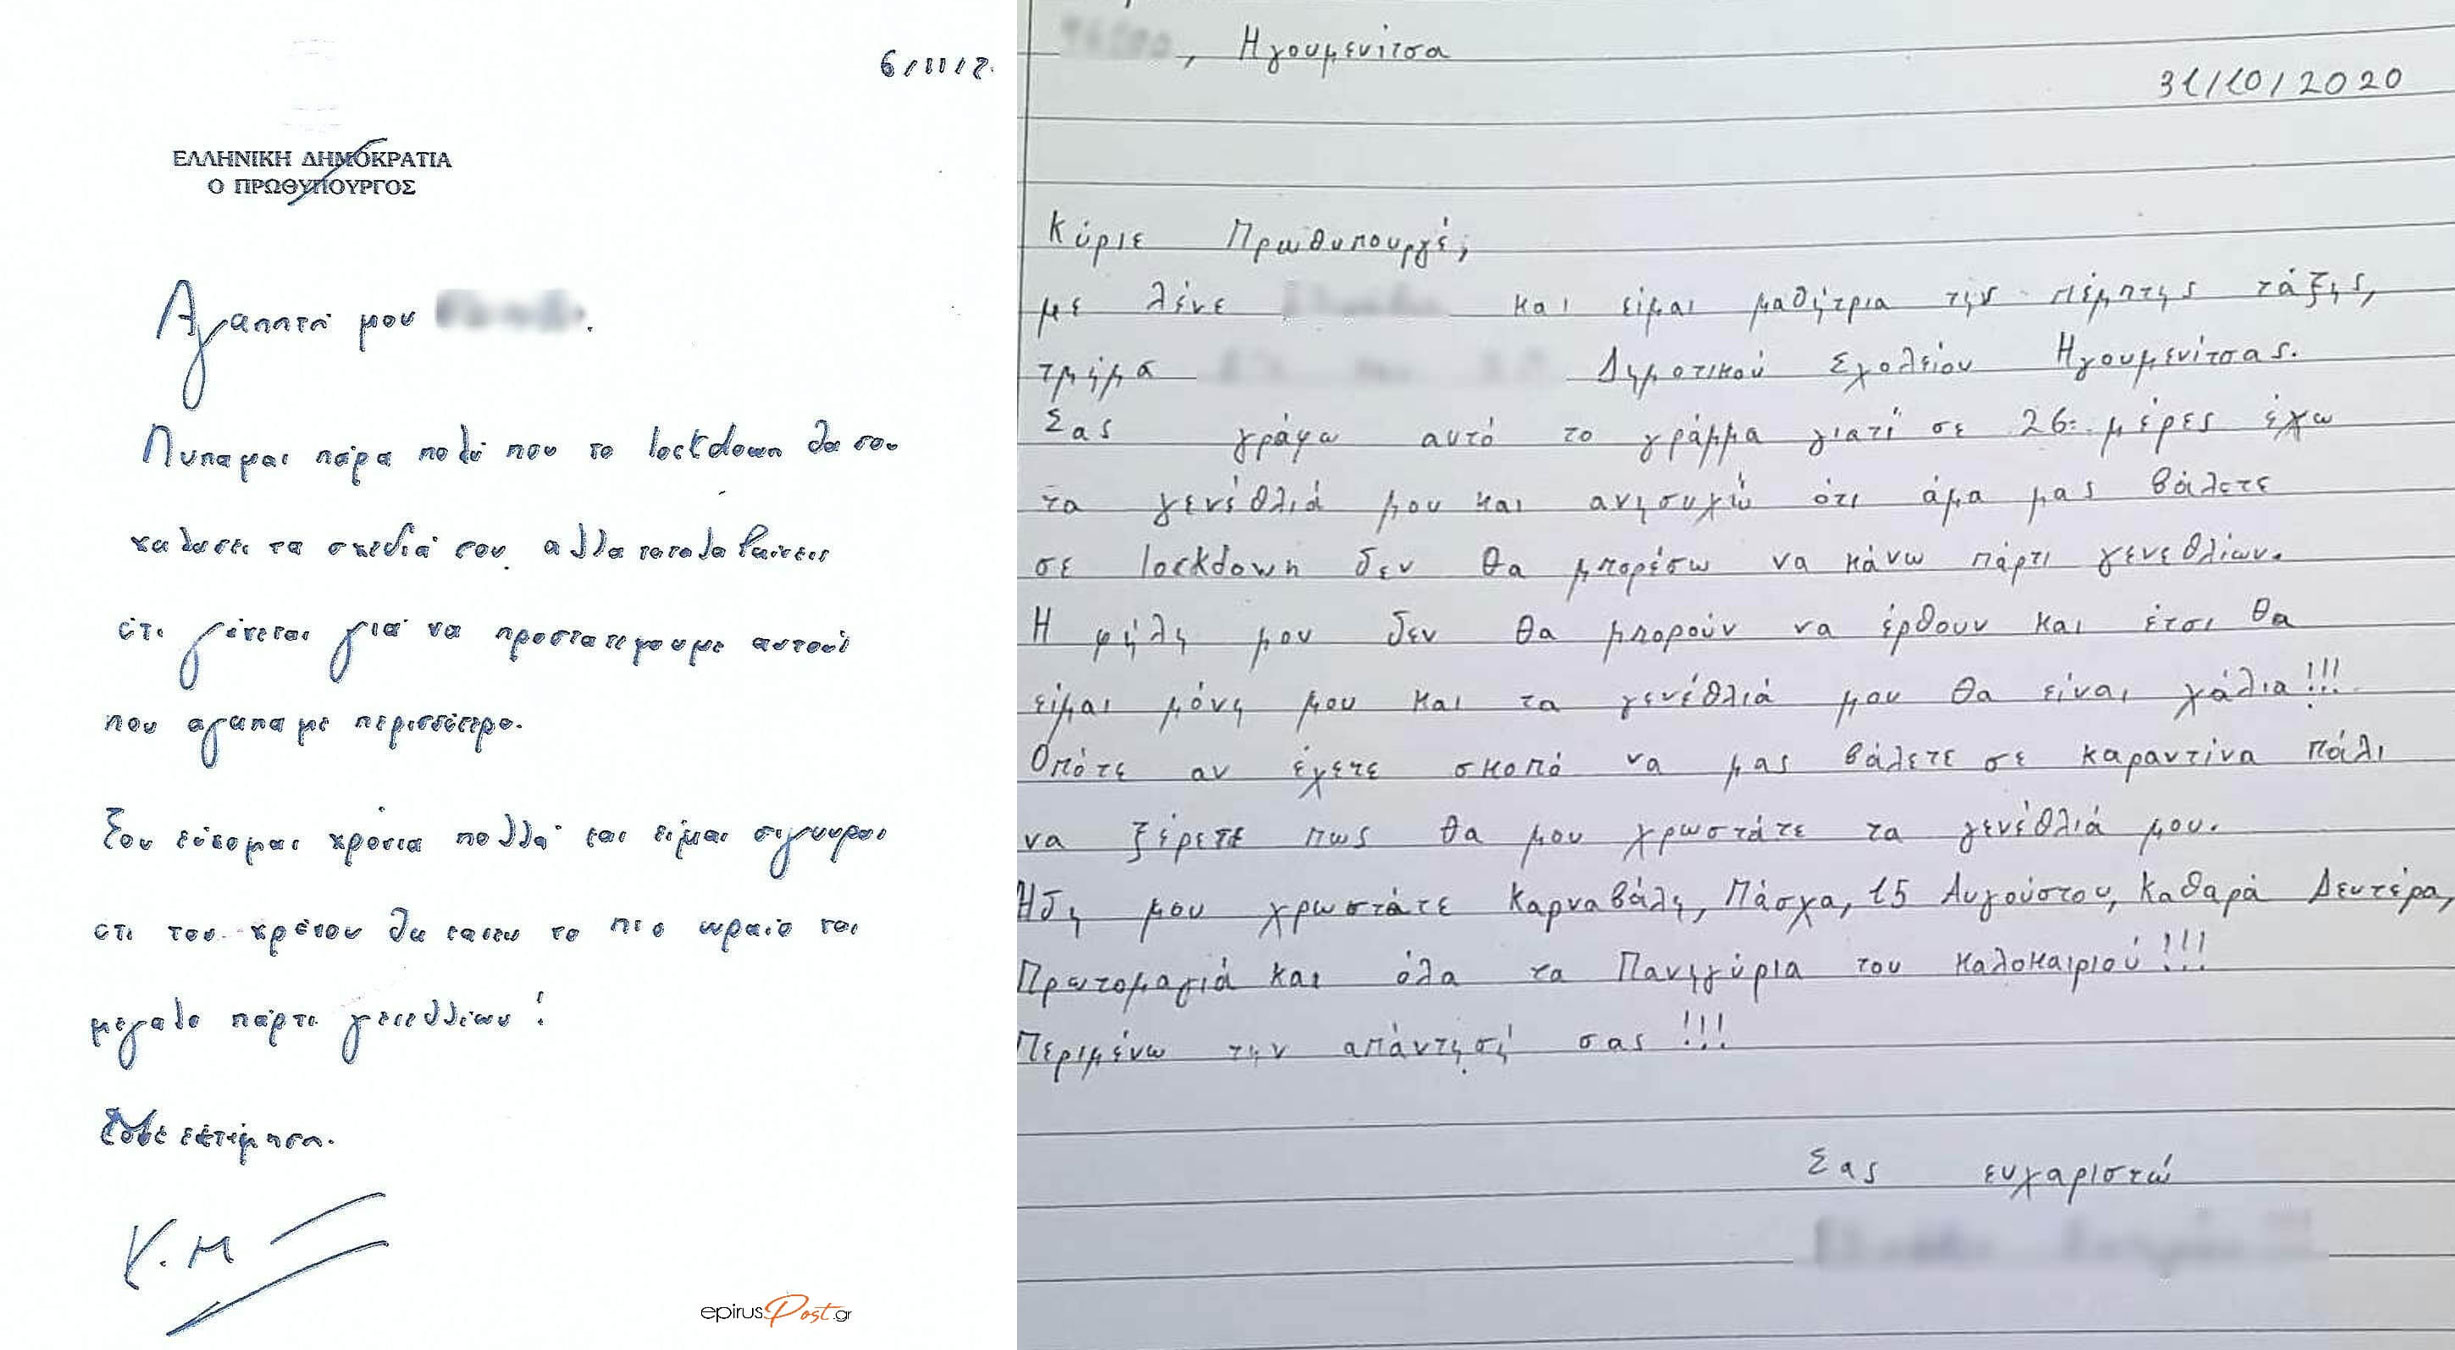 6/11/2
ΕΛΛΗΝΙΚΗ ΔΗΜΟΚΡΑΤΙΑ
Ο ΠΡΩΘΥΠΟΥΡΓΟΣ
Αγαπητή μου
Λυπαμαι πάρα πολύ που το lockdown θα σου
χαλασει τα σχεδιά σου αλλα καταλαβαίνεις
ότι γίνεται για να προστατεψουμε αυτούς
που αγαπαμε περισσότερο.
Σου εύχομαι χρόνια πολλά και ειμαι σιγουρος
οτι του χρόνου θα κανεις το πιο ωραίο και
μεγαλο πάρτι γενεθλίων!
εκτίμηση.
Κ.Μ
epirusPost.gr
, Ηγουμενίτσα
31/10/2020
Κύριε Πρωθυπουργέ,
με λένε και είμαι μαθήτρια της πέμπτης τάξης,
τμήμα Δημοτικού Σχολείου Ηγουμενίτσας.
Σας γράφω αυτό το γράμμα γιατί σε 26 μέρες έχω
τα γενέθλιά μου και ανησυχώ ότι άμα μας βάλετε
σε lockdown δεν θα μπορέσω να κάνω πάρτι γενεθλίων.
Η φήλη μου δεν θα μπορούν να έρθουν και έτσι θα
είμαι μόνη μου και τα γενέθλιά μου θα είναι χάλια!!!
Οπότε αν έχετε σκοπό να μας βάλετε σε καραντίνα πάλι
να ξέρετε πως θα μου χρωστάτε τα γενέθλιά μου.
Ηδη μου χρωστάτε Καρναβάλη, Πάσχα, 15 Αυγούστου, Καθαρά Δευτέρα,
Πρωτομαγιά και όλα τα Πανηγύρια του καλοκαιριού!!!
Περιμένω την απάντησή σας!!!
Σας ευχαριστώ